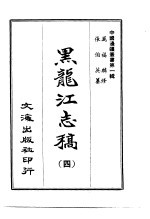 中國邊疆叢書第一輯
萬福麟修
張伯英纂
黑龍江志稿
(四)
文海出版社印行